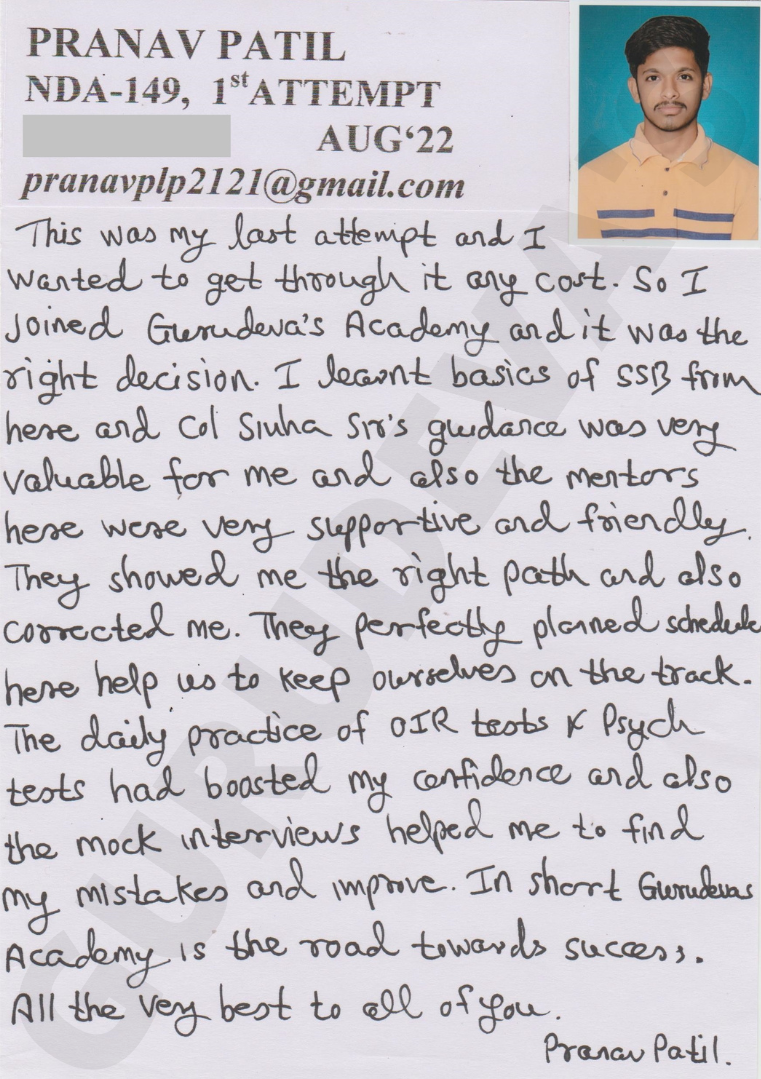 PRANAV PATIL
NDA-149, 1st ATTEMPT
AUG‘22
pranavplp2121@gmail.com
This was my last attempt and I
wanted to get through it any cost. So I
joined Gurudeva's Academy and it was the
right decision. I learnt basics of SSB from
here and Col Sinha Sir's guidance was very
valuable for me and also the mentors
here were very supportive and friendly.
They showed me the right path and also
corrected me. They perfectly planned schedule
here help us to keep ourselves on the track.
The daily practice of OIR tests & Psych
tests had boosted my confidence and also
the mock interviews helped me to find
my mistakes and improve. In short Gurudevas
Academy is the road towards success.
All the very best to all of you.
Pranav Patil.
GURUDEVA